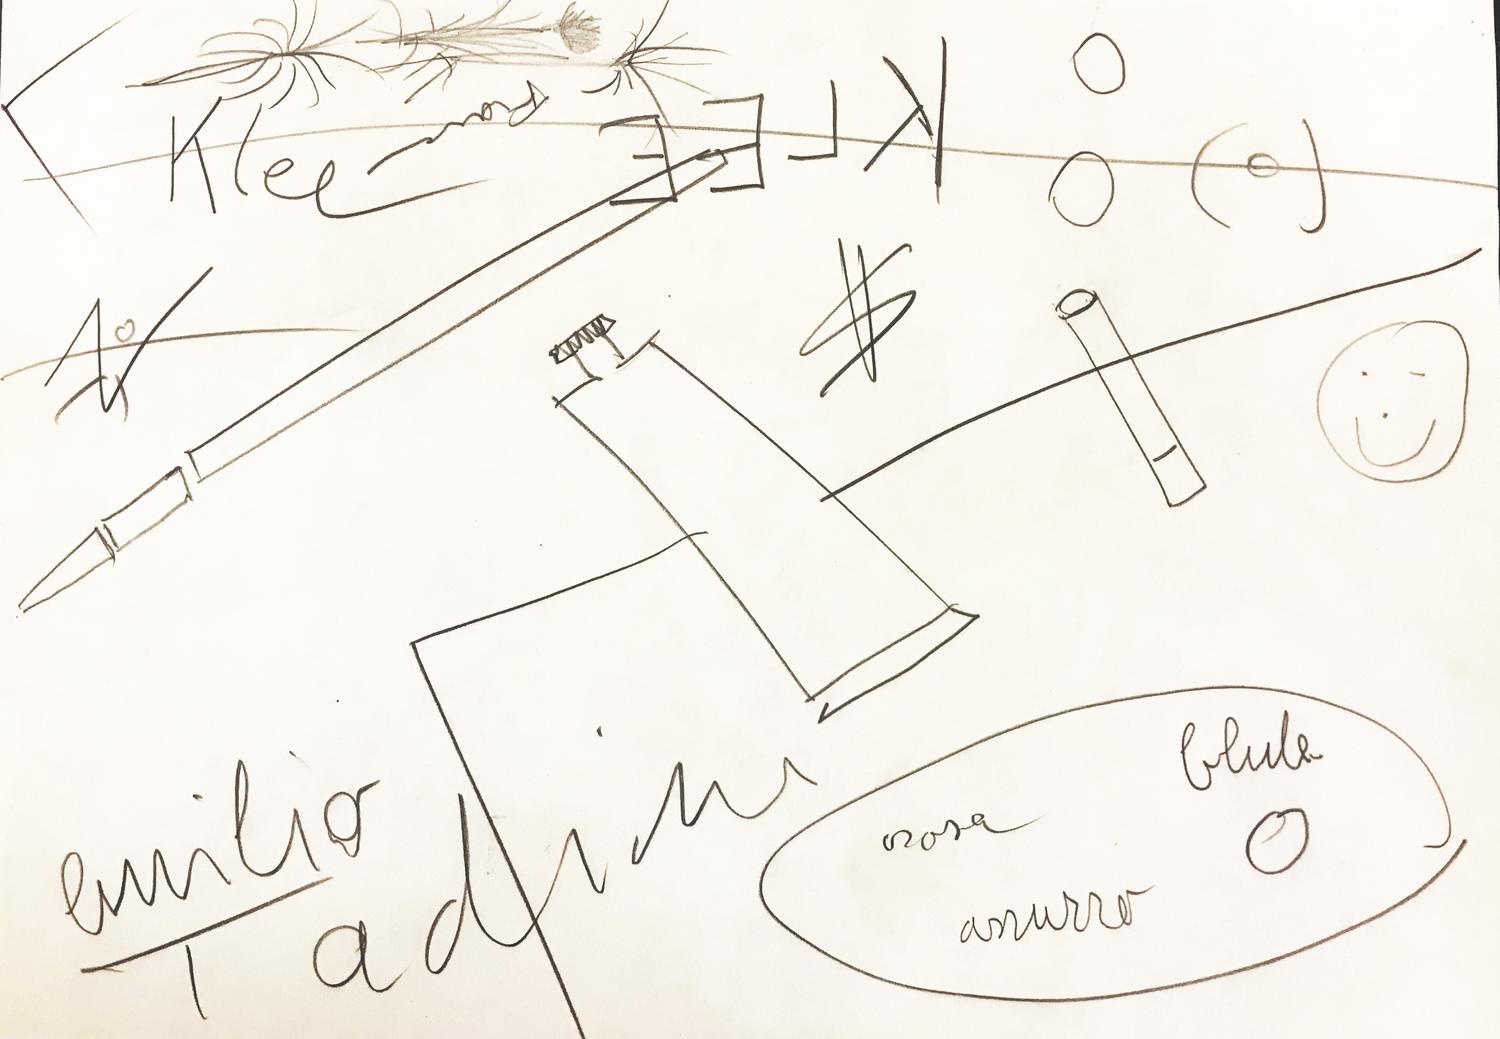 Klee
KLEE
emilio
Tadini
rosa
azzurro